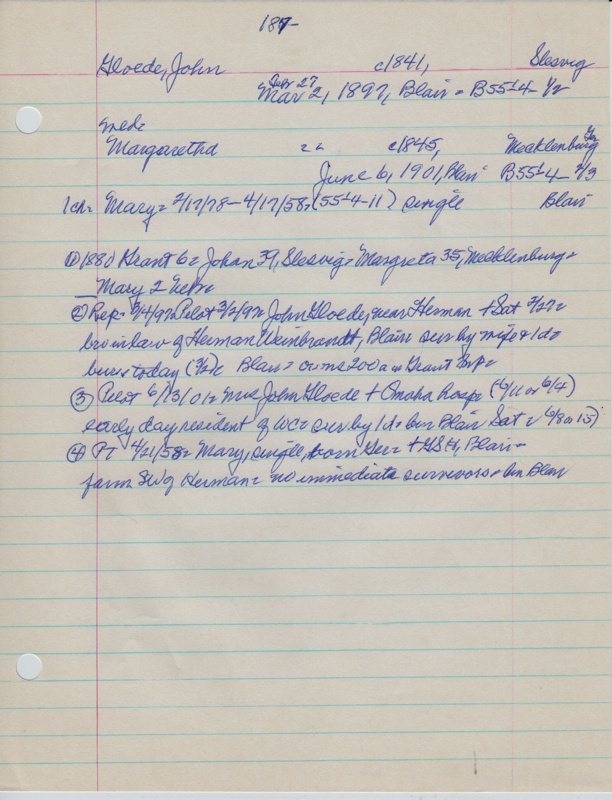 187-
Gloede, John c1841, Slesvig
Febr 27
Mar 2, 1897, Blair = B5514- 1/2
med=
Margaretha = = c1845, Mecklenburg Ger
June 6, 1901, Blair B5514- 2/3
1 ch= Mary= 2/17/78-4/17/58= (5514-11) single Blair
① 1880 Grant 6= Johan 39, Slesvig= Margreta 35, Mecklenburg=
Mary 2 Nebr=
② Rep= 3/4/97= Pilot 3/2/97= John Gloede, near Herman + Sat 2/27=
bro in law of Herman Weinbrandt, Blair= sur by wife & 1 d=
bur= today (3/2) Blair= owns 200 a = Grant Twp=
③ Pilot 6/13/01= Mrs John Gloede + Omaha hosp= (6/11 or 6/4)
early day resident of WC= sur by 1 d= bur Blair Sat= (6/8 or 15)
④ PT 4/21/58= Mary, single, born Ger= + GSH, Blair=
farm SW of Herman= no immediate survivors= bur Blair